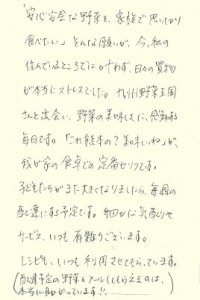 「安心安全な野菜を、家族で思いっきり
食べたい」そんな願いが、今、私の
住んでいるところではかなわず、日々の買物
が本当にストレスでした。九州野菜王国
さんと出会い、野菜の美味しさに、感動の
毎日です。「これ絵本の?美味しいね」が、
我が家の食卓での定番セリフです。
子どもたちがまた大きくなりましたら、毎週の
配達にする予定です。細やかな気配りや
サービス、いつも有難うございます。
レシピも、いつも利用させてもらっています。
(配達予定の野菜をメールしてもらえるのは、
本当に助かっています!!)